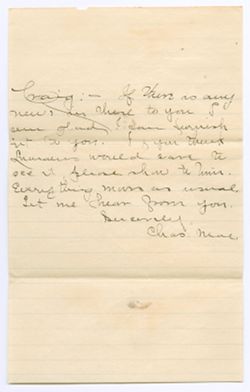 Craig:- If there is any
news in there to you I
am glad I can furnish
it to you. If you think
would care to
see it please show to him.
Everything moves as usual.
Let me hear from you.
Sincerely
Chas.